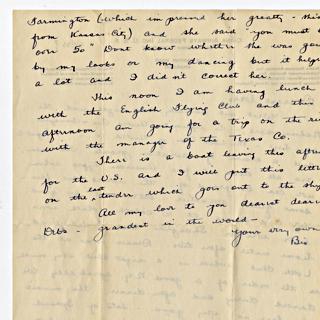 Farmington (which impressed her greatly - this
from Kansas City) and she said "you must
over 50" Dont know whether she was
by my looks or my dancing but it help
a lot and I didn't correct her.
This noon I am having lunch
with the English Flying Club and this
afternoon am going for a trip on the
with the manager of the Texas Co.
There is a boat leaving this after
for the U.S. and I will put this lette
on the last tender which goes out to the ship
All my love to you dearest
grandest in the world -
Your very own